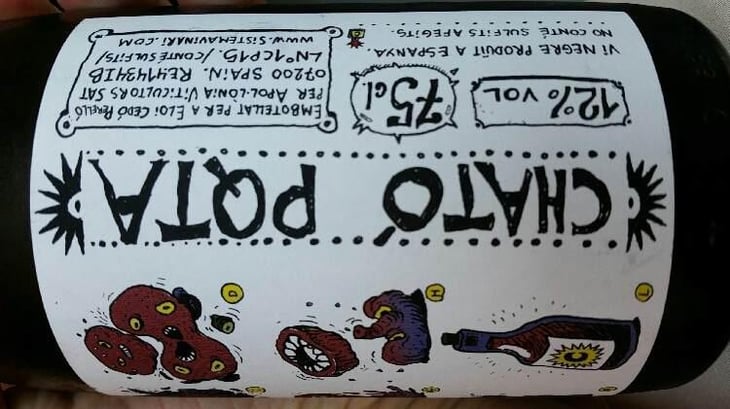 L
H
D
C
CHATÓ PQTA
12% VOL
75cl
VI NEGRE PRODUÏT A ESPANYA.
NO CONTÉ SULFITS AFEGITS.
EMBOTELLAT PER A ELOI CEDÓ PERELLÓ
PER APOL·LÒNIA VITICULTORS SAT
07200 SPAIN. RE41434IB
LNº1CP15. /CONTÉ SULFITS/
WWW.SISTEMAVINARI.COM